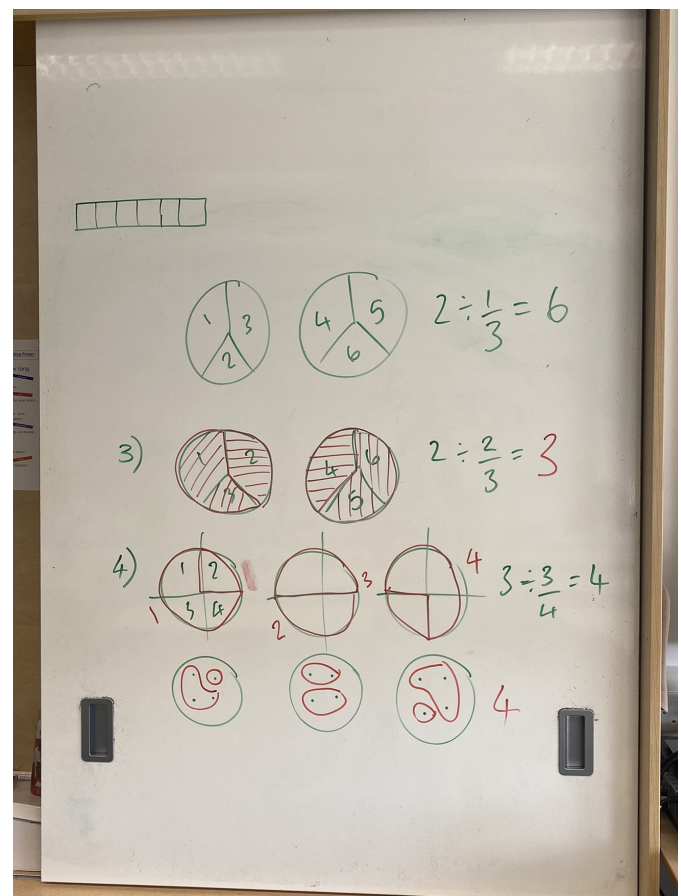 1 3 2 4 5 6 2 ÷ 1/3 = 6
3) 1 2 3 4 6 5 2 ÷ 2/3 = 3
4) 1 2 3 4 1 2 3 4 3 ÷ 3/4 = 4
4
long